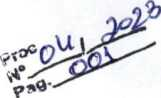 Proc
Nº 04 / 2023
Pag. 001